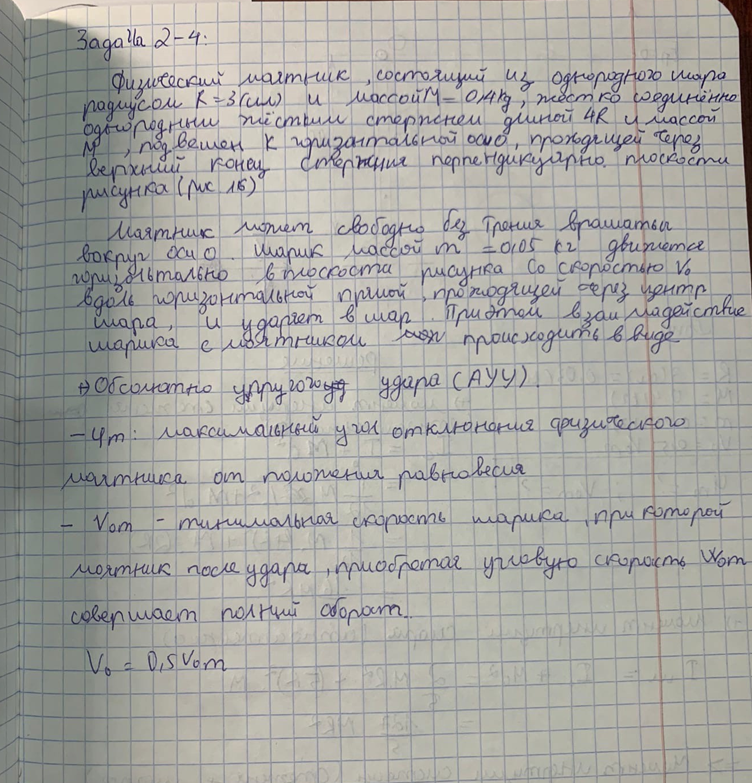 Задача 2-4:
Физический маятник, состоящий из однородного шара
радиусом R=3(см) и массой M=0,4kg, жёстко соединённо
однородным жёстким стержнем длиной 4R и массой
M, подвешен к горизонтальной осио, проходящей через
верхний конец стержния перпендикулярно плоскости
рисунка (рис 1б)
Маятник может свободно без трения вращаться
вокруг оси о. шарик массой m =0,05 кг движется
горизонтально в плоскости рисунка со скоростью V₀
вдоль горизонтальной прямой, проходящей через центр
шара, и ударяет в шар. При этом взаимадействие
шарика с маятником происходить в виде
→Обсолютно упругого удара (АУУ).
- φm: максимальный угол отклонения физического
маятника от положения равновесия
- Vom - минимальная скорость шарика, при которой
маятник после удара, приобретая угловую скорость Wom
совершает полный оборот.
V₀ = 0,5Vom